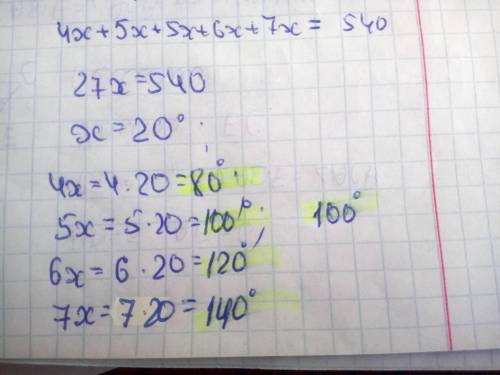 4x+5x+5x+6x+7x= 540
27x=540
x=20°.
4x=4·20=80°.
5x=5·20=100°. 100°
6x=6·20=120°
7x=7·20=140°